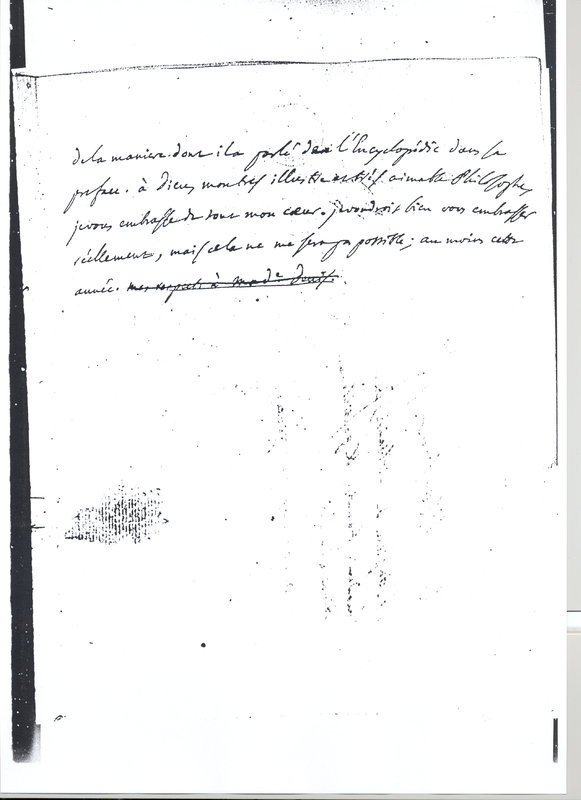 de la maniere dont il a parlé de l'Encyclopédie dans sa
preface. à Dieu, mon tres illustre et tres aimable Philosophe,
je vous embrasse de tout mon cœur. je voudrois bien vous embrasser
réellement, mais cela ne me sera pas possible; au moins cette
année. mes respects à made Denis.